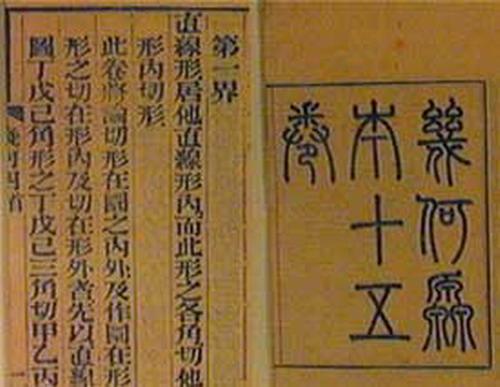 幾何原
本十五
卷
第一界
直線形居他直線形內而此形之各角切他
形內切形
此卷將論切形在圜之內外及作圜在形
形之切在形內及切在形外者先以直線
圖丁戊己角形之丁戊己三角切甲乙丙
四首
一